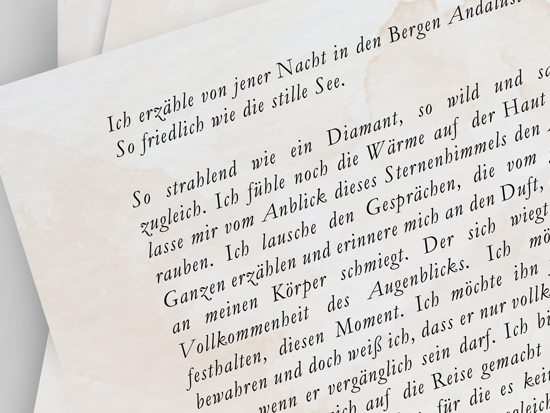 Ich erzähle von jener Nacht in den Bergen
So friedlich wie die stille See.
So strahlend wie ein Diamant, so wild und
zugleich. Ich fühle noch die Wärme auf der Haut
lasse mir vom Anblick dieses Sternenhimmels den
rauben. Ich lausche den Gesprächen, die vom
Ganzen erzählen und erinnere mich an den Duft,
an meinen Körper schmiegt. Der sich wiegt
Vollkommenheit des Augenblicks. Ich
festhalten, diesen Moment. Ich möchte ihn
bewahren und doch weiß ich, dass er nur
wenn er vergänglich sein darf. Ich
auf die Reise gemacht
für die es